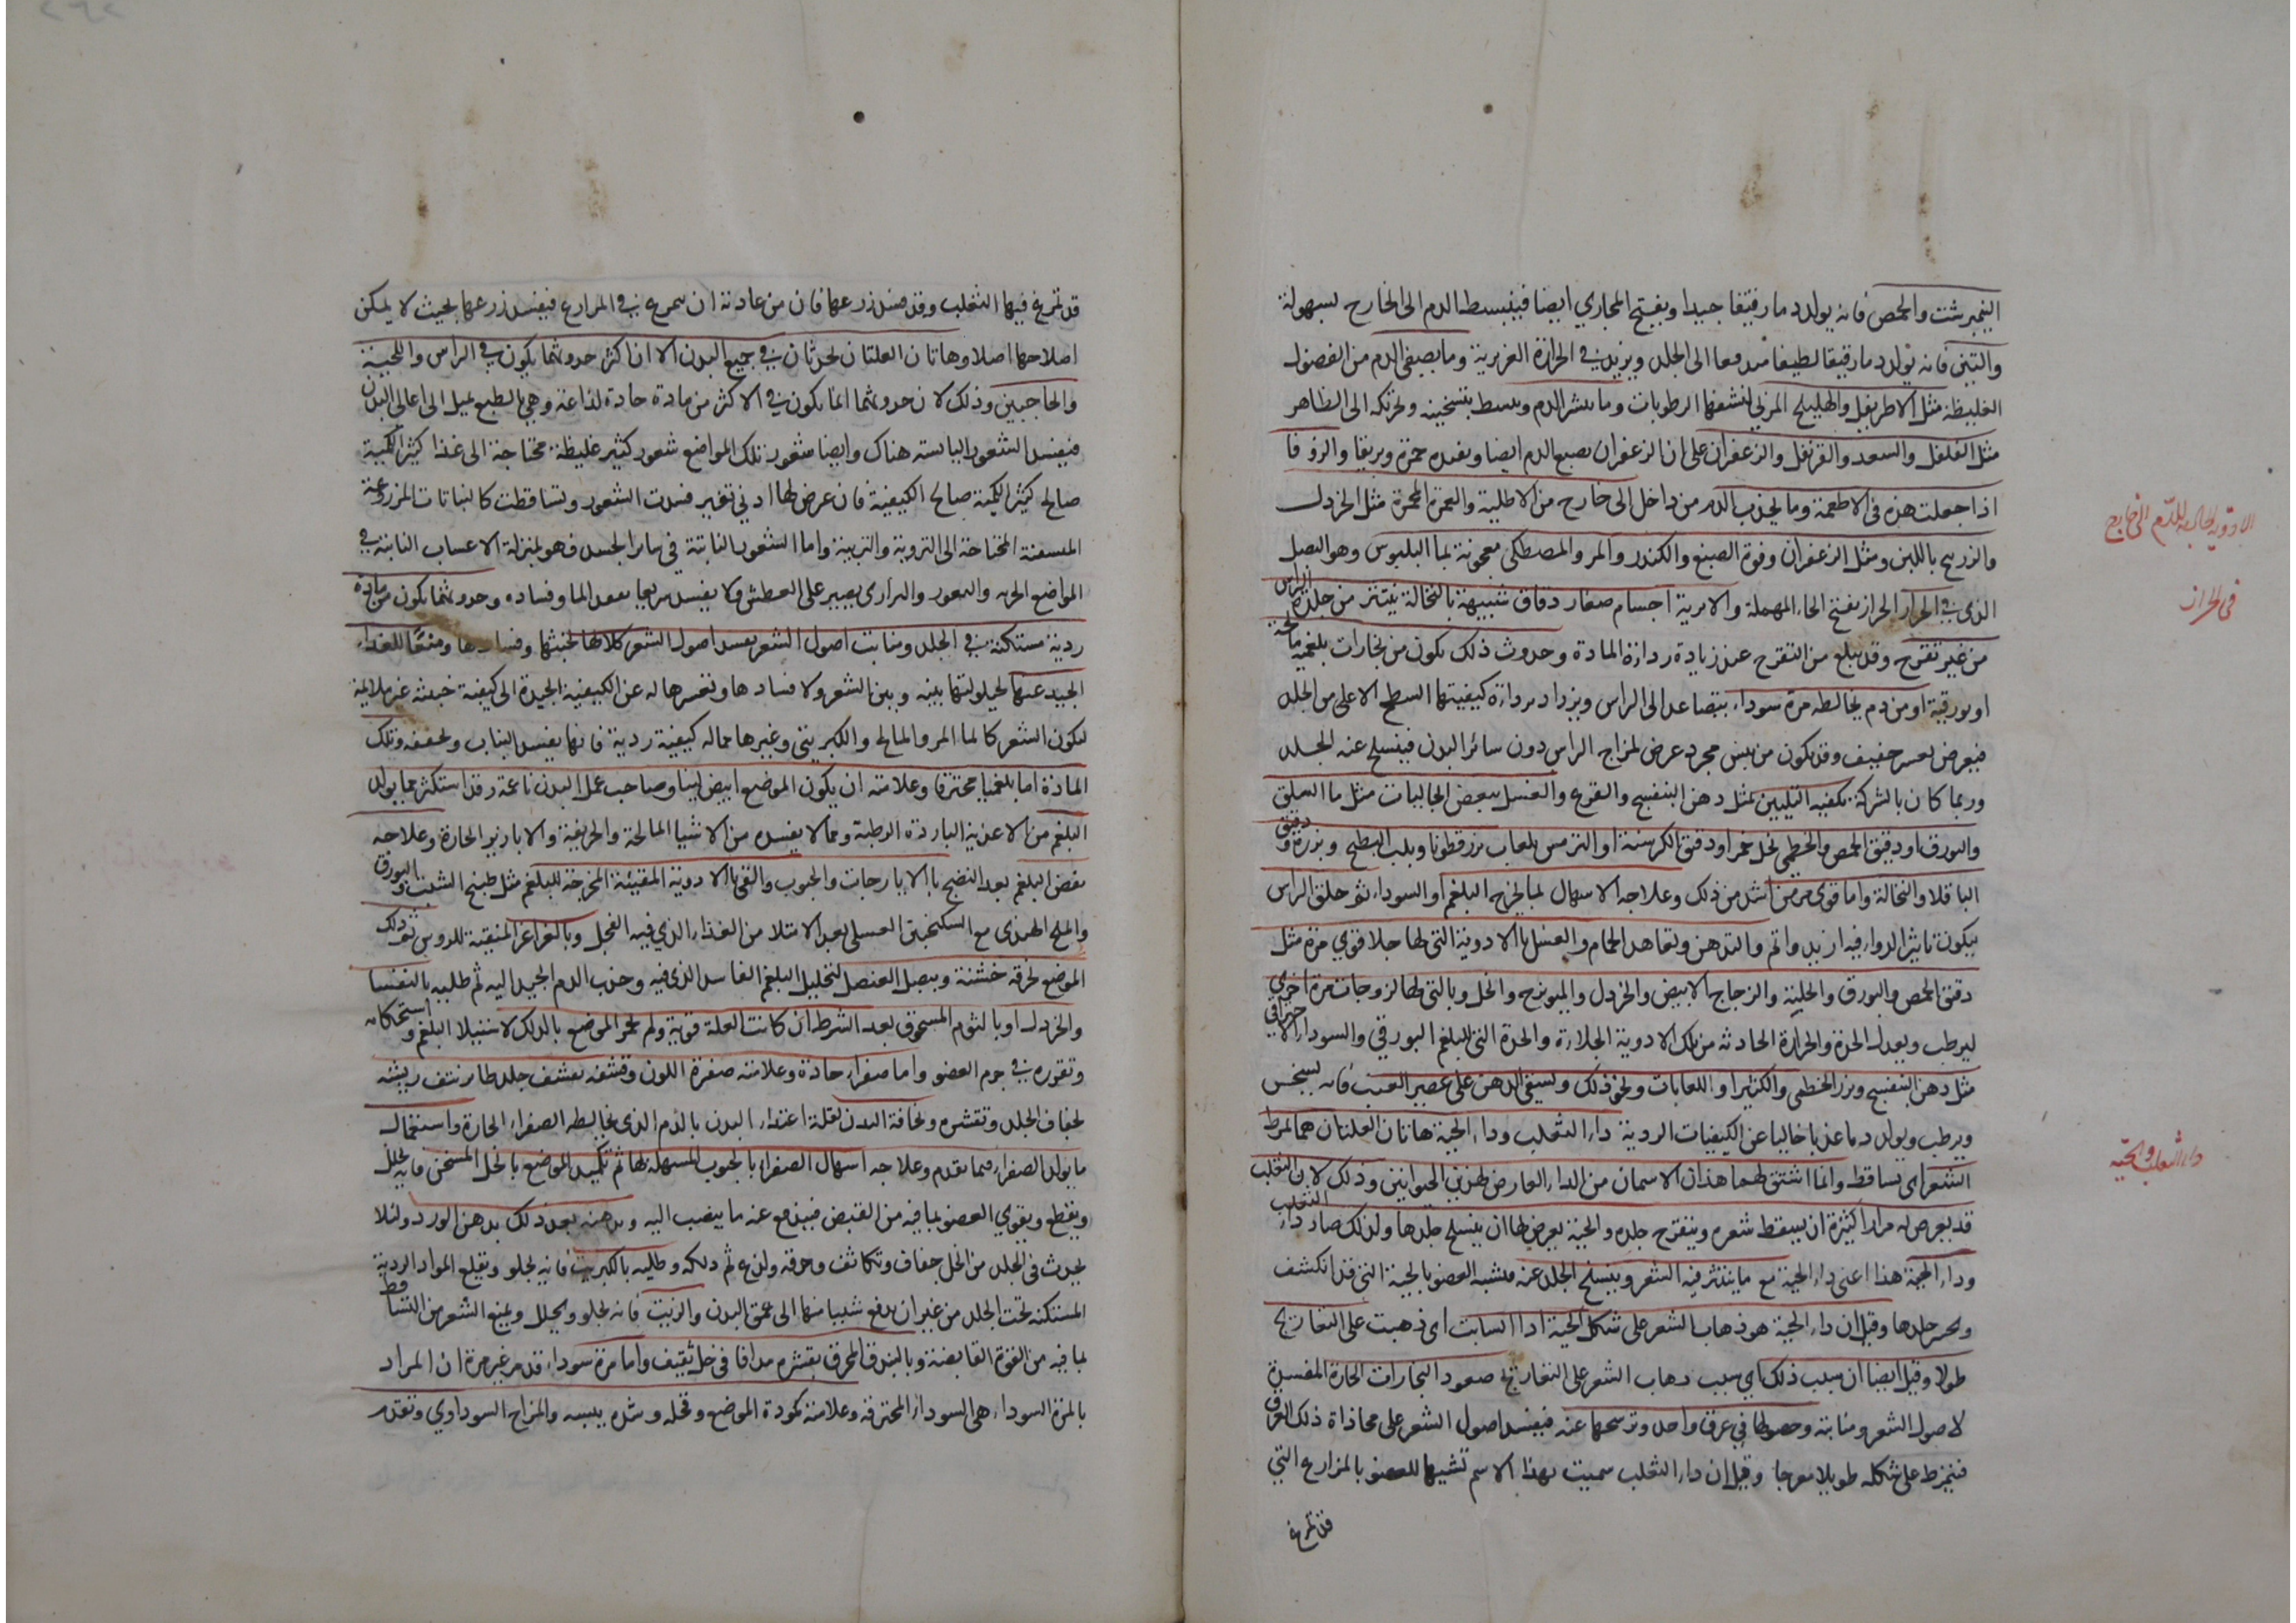 النيمبرشت والحمص فانه يولد دما رقيقا جيدا ويفتح المجاري ايضا فينبسط الدم الى الخارج بسهولة
والتين فانه يولد دما رقيقا لطيفا مندفعا الى الجلد ويزيد في الحرارة الغريزية وما يصفى الدم من الفضول
الغليظة مثل الاطريفل والهليلج المربى لنشفها الرطوبات وما ينشر الدم ويبسط بتسخينه وتحركه الى الظاهر
مثل الفلفل والسعد والقرنفل والزعفران على ان الزعفران يصبغ الدم ايضا ويفيده حمرة وبريقا والزوفا
اذا جعلت هذه في الاطعمة وما يجذب الدم من داخل الى خارج من الاطلية والغمرة المحمرة مثل الخردل
والزرنيخ باللبن ومثل الزعفران وفوة الصبغ والكندر والمر والمصطكى معجونة بما البلبوس وهو البصل
الذي في الحزاز الحزاز بفتح الحاء المهملة والابرية اجسام صغار دقاق شبيهة بالنخالة ينتثر من جلدة الراس
من غير تقرح وقد يبلغ من التقرح عند زيادة رداءة المادة وحدوث ذلك يكون من بخارات بلغمية مالحة
او بورقية او من دم يخالطه مرة سوداء يتصاعد الى الراس ويزداد برداءة كيفيتها السطح الاعلى من الجلد
فيعرض تعسر خفيف وقد يكون من يبس مجرد عرض لمزاج الراس دون سائر البدن فينسلخ عنه الجلد
وربما كان بالشركة يكفيه التليين بمثل دهن البنفسج والقرع والغسل ببعض الجاليات مثل ما السلق
والبورق او دقيق الحمص والخطمي بخل خمر او دقيق الكرسنة او الترمس بلعاب بزر قطونا وبلب البطيخ وبزره ودقيق
الباقلا والنخالة واما قوي مزمن اشد من ذلك وعلاجه الاسهال بما يخرج البلغم او السوداء ثم حلق الراس
ليكون تاثير الدواء فيه ازيد واتم والتدهن وتعاهد الحمام والغسل بالادوية التي لها جلا قوي مرة مثل
دقيق الحمص والبورق والحلبة والزجاج الابيض والخردل والميويزج والخل وبالتي لها لزوجات مرة اخرى
ليرطب ويعدل الحدة والحرارة الحادثه من تلك الادوية الجلاءة والحدة التي للبلغم البورقي والسوداء الاحتراقي
مثل دهن البنفسج وبزر الخطمي والكثيرا واللعابات ونحو ذلك ويسقى الدهن على عصير العنب فانه يسخن
ويرطب ويولد دما عذبا خاليا عن الكيفيات الردية داء الثعلب وداء الحية هاتان العلتان هما تمرط
الشعر اي تساقطه وانما اشتق لهما هذان الاسمان من الداء العارض لهذين الحيوانين وذلك لان الثعلب
قد يعرض له مرارا كثيرة ان يسقط شعره ويتقرح جلده والحية يعرض لها ان ينسلخ جلدها ولذلك صار داء الثعلب
وداء الحية هذا اعنى داء الحية مع ما ينتثر فيه الشعر وينسلخ الجلد عنه فيشبه العضو بالحية التي قد انكشف
وانحسر جلدها وقيل ان داء الحية هو ذهاب الشعر على شكل الحية اذا انسابت اى ذهبت على التعاريج
طولا وقيل ايضا ان سبب ذلك اي سبب ذهاب الشعر على التعاريج صعود البخارات الحارة المفسدة
لاصول الشعر ومنابته وحصولها في عرق واحد وترشحها عنه فيفسد اصول الشعر على محاذاة ذلك العرق
فيتمرط على شكله طويلا معرجا وقيل ان داء الثعلب سميت بهذا الاسم تشبيها للعضو بالمزارع التي
قد تمرغ
الادوية الجالبة للدم الى خارج
في الحزاز
داء الثعلب والحية
قد تمرغ فيها الثعلب وقد فسد زرعها فان من عادته ان يتمرغ في المزارع فيفسد زرعها بحيث لا يمكن
اصلاحها اصلا وهاتان العلتان تحدثان في جميع البدن الا ان اكثر حدوثهما يكون في الراس واللحية
والحاجبين وذلك لان حدوثهما انما يكون في الاكثر من مادة حادة لذاعة وهي بالطبع تميل الى اعالي البدن
فيفسد الشعور النابتة هناك وايضا شعور تلك المواضع شعور كثير غليظة محتاجة الى غذا كثير الكمية
صالح كثير الكمية صالح الكيفية فان عرض لها ادنى تغير فسدت الشعور وتساقطت كالنباتات المزروعة
المحتاجة الى التروية والتربية واما الشعور النابتة في سائر الجسد فهو بمنزلة الاعشاب النابتة في
المواضع والبراري يصبر على العطش ولا يفسد سريعا بفقد الما وفساده وحدوثهما يكون من مادة
ردية مستكنة في الجلد ومنابت اصول الشعر يفسد اصول الشعر كلالها لخبثها وفسادها ومنعها للغذاء
الجيد عنها لحيلولتها بينه وبين الشعر ولا فسادها وتغييرها له عن الكيفية الجيدة الى كيفية خبيثة غير ملايمة
لتكون الشعر كالماء المر والمالح والكبريتي وغيرها مما له كيفية ردية فانها يفسد النبات ويجففه وتلك
المادة اما بلغميا محترقا وعلامته ان يكون الموضع ابيض لينا وصاحب عمل البدن ناعمه وقد استكثر مما يولد
البلغم من الاغذية الباردة الرطبة ومما لا يفسده من الاشيا المالحة والحريفية والابازير الحارة وعلاجه
نفض البلغم بعد النضج بالايارجات والحبوب والقئ بالادوية المقيئة المخرجة للبلغم مثل طبيخ الشبث والبورق
والملح الهندي مع السكنجبين العسلي بعد الامتلا من الغذاء الذي فيه الفجل وبالغراغر المنقية للروس ثم دلك
الموضع بخرقة خشنة وببصل العنصل لتحليل البلغم الفاسد الذي فيه وجذب الدم الجيد اليه ثم طليه بالثفسيا
والخردل او بالثوم المسحوق بعد الشرط ان كانت العلة قوية ولم يحمر الموضع بالدلك لاستيلا البلغم واستحكامه
وتقوره في جرم العضو واما صفراء حادة وعلامته صفرة اللون وقشفه يشف جلد طائر نتف ريشه
لجفاف الجلد وتقشره ونحافة البدن لقلة اغتذاء البدن بالدم الذي يخالطه الصفراء الحارة واستعماله
ما يولد الصفراء فيما تقدم وعلاجه اسهال الصفراء بالحبوب المسهلة لها ثم تكميد الموضع بالخل المسخن فانه يحلل
ويقطع ويقوي العضو بما فيه من القبض فيندفع عنه ما ينصب اليه ويدهنه بعد ذلك بدهن الورد ولئلا
يحدث في الجلد من الخل جفاف وتكاثف وحرقة ولذع ثم دلكه وطليه بالكبريت فانه يجلو ويقلع المواد الردية
المستكنة تحت الجلد من غير ان يدفع شيئا منها الى عمق البدن والزيت فانه يجلو ويحلل ويمنع الشعر من التساقط
لما فيه من القوة القابضة وبالبندق المحرق بقشره مدافا في خل ثقيف واما مرة سوداء قد مر غير مرة ان المراد
بالمرة السوداء هي السوداء المحترقه وعلامته كمودة الموضع وقحله وشدة يبسه والمزاج السوداوي وتقدم